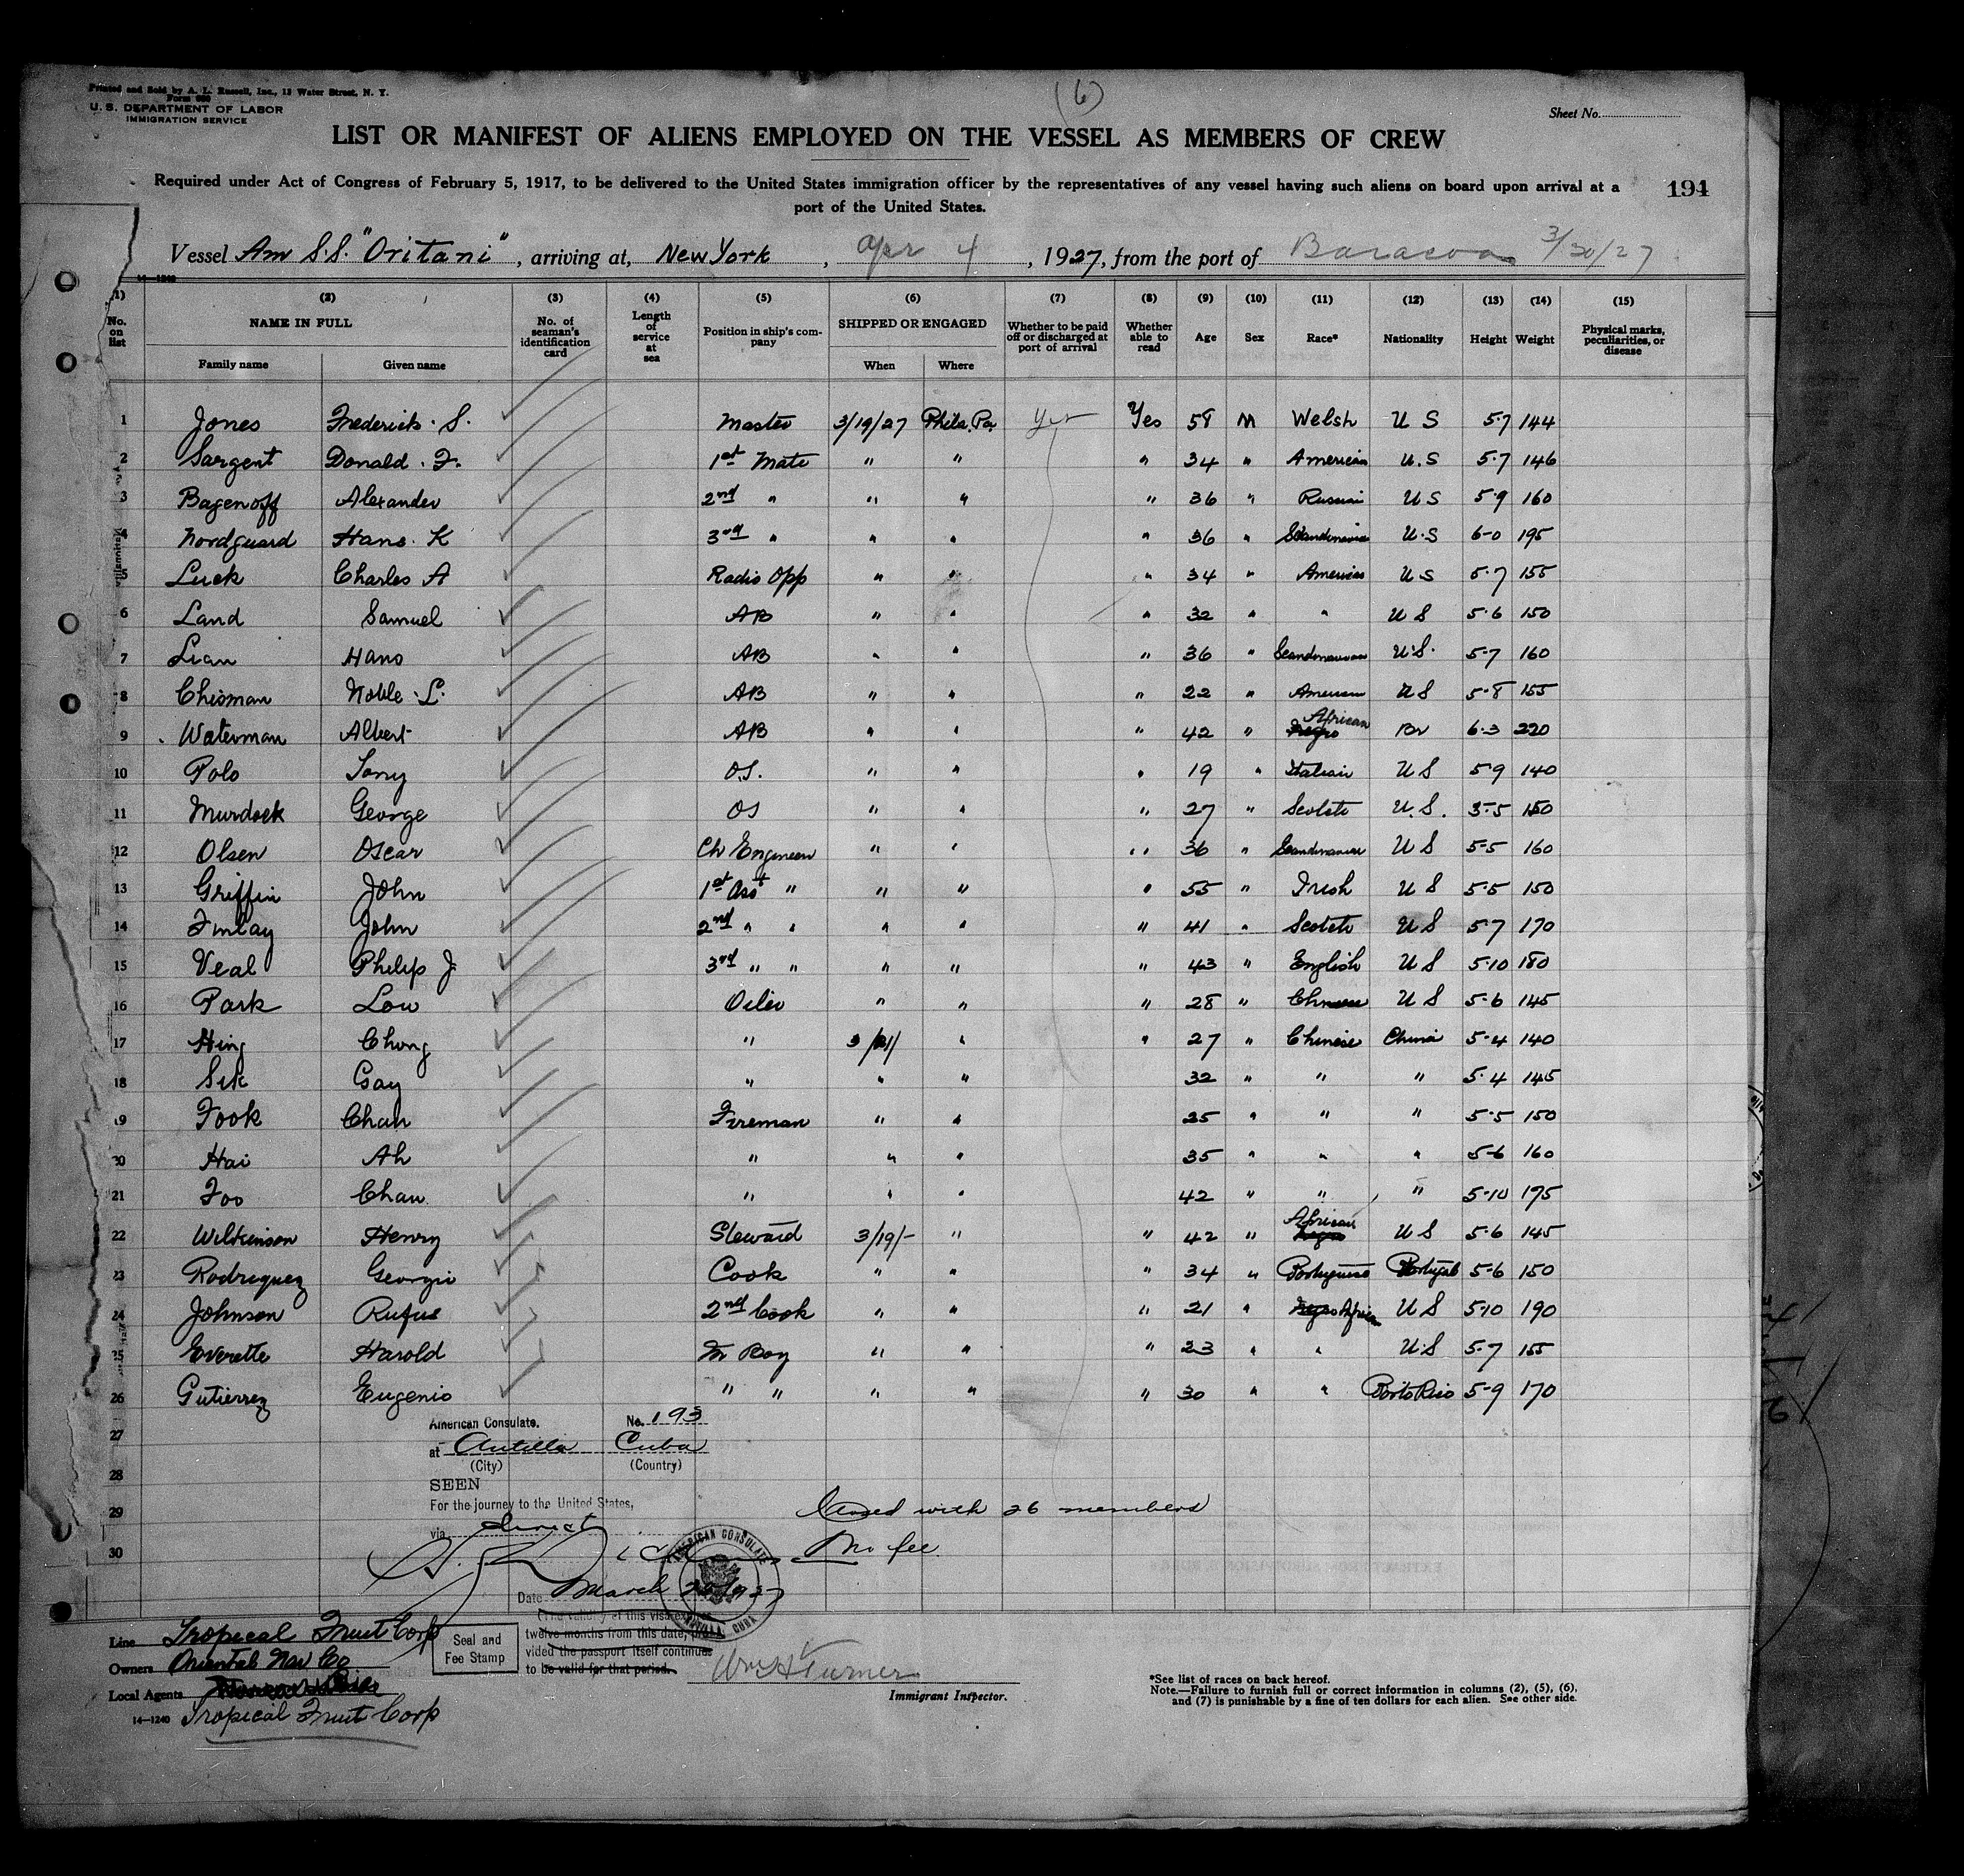 Printed and Sold by A. L. Russell, Inc., 12 Water Street, N. Y.
Form 680
U. S. DEPARTMENT OF LABOR
IMMIGRATION SERVICE
(6)
Sheet No.
LIST OR MANIFEST OF ALIENS EMPLOYED ON THE VESSEL AS MEMBERS OF CREW
Required under Act of Congress of February 5, 1917, to be delivered to the United States immigration officer by the representatives of any vessel having such aliens on board upon arrival at a
port of the United States.
194
Vessel Am S.S. "Oritani", arriving at, New York, Apr 4, 1927, from the port of Baracoa 3/30/27
14-1240
(1) (2) (3) (4) (5) (6) (7) (8) (9) (10) (11) (12) (13) (14) (15)
No. on list NAME IN FULL Family name Given name No. of seaman's identification card Length of service at sea Position in ship's company SHIPPED OR ENGAGED When Where Whether to be paid off or discharged at port of arrival Whether able to read Age Sex Race* Nationality Height Weight Physical marks, peculiarities, or disease
1 Jones Frederick. S. Master 3/19/27 Phila. Pa. Yes Yes 58 M Welsh U S 5-7 144
2 Sargent Donald. F. 1st Mate " " " 34 " American U.S 5-7 146
3 Bagenoff Alexander 2nd " " " " 36 " Russian U S 5-9 160
4 Nordguard Hans. K 3rd " " " " 36 " Scandinavian U.S 6-0 195
5 Luck Charles A Radio Opp " " " 34 " American U S 5-7 155
6 Land Samuel AB " " " 32 " " U S 5-6 150
7 Lian Hans AB " " " 36 " Scandinavian U.S. 5-7 160
8 Chisman Noble L. AB " " " 22 " American U S 5-8 155
9 Waterman Albert AB " " " 42 " African Br 6-3 220
10 Polo Tony O.S. " " " 19 " Italian U S 5-9 140
11 Murdock George OS " " " 27 " Scotch U.S. 5-5 150
12 Olsen Oscar Ch Engineer " " " 36 " Scandinavian U S 5-5 160
13 Griffin John 1st Asst " " " " 55 " Irish U S 5-5 150
14 Finlay John 2nd " " " " " 41 " Scotch U S 5-7 170
15 Veal Philip J. 3rd " " " " " 43 " English U S 5-10 180
16 Park Low Oiler " " " 28 " Chinese U S 5-6 145
17 Hing Chong " 3/21/ " " 27 " Chinese China 5-4 140
18 Sek Gay " " " 32 " " " 5-4 145
19 Fook Chan Fireman " " 25 " " " 5-5 150
20 Hai Ah " " " 35 " " " 5-6 160
21 Foo Chan " " " 42 " " " 5-10 175
22 Wilkinson Henry Steward 3/19/- " " 42 " African U S 5-6 145
23 Rodriguez Georgio Cook " " " 34 " Portuguese Portugal 5-6 150
24 Johnson Rufus 2nd Cook " " " 21 " African U S 5-10 190
25 Everette Harold M Boy " " " 23 " " U.S 5-7 155
26 Gutierrez Eugenio " " " " " 30 " " Porto Rico 5-9 170
27
28
29
30
American Consulate, No. 193
at Antilla Cuba
(City) (Country)
SEEN
For the journey to the United States,
via direct
AMERICAN CONSULATE
ANTILLA, CUBA
Date March 1927
(The validity of this visa expires
twelve months from this date, pro-
vided the passport itself continues
to be valid for that period.
Seal and
Fee Stamp
with 26 members
No fee.
Line Tropical Fruit Corp
Owners Oriental Nav Co
Local Agents
14-1240 Tropical Fruit Corp
Wm H Turner
Immigrant Inspector.
*See list of races on back hereof.
Note.—Failure to furnish full or correct information in columns (2), (5), (6),
and (7) is punishable by a fine of ten dollars for each alien. See other side.